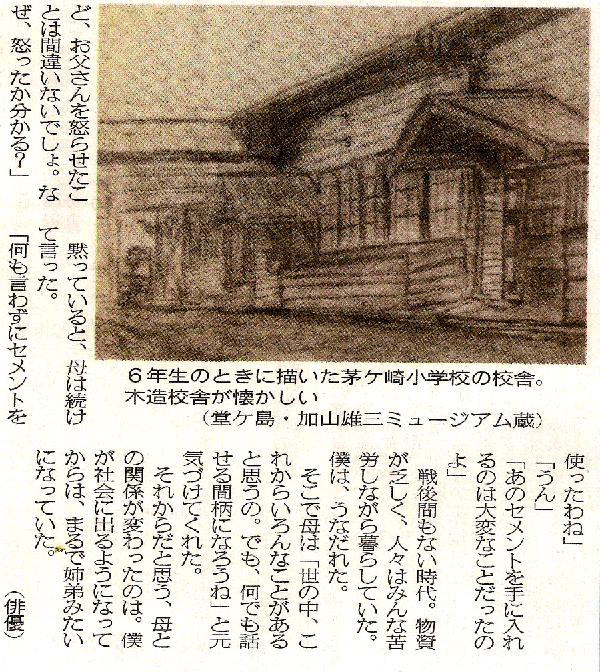 ど、お父さんを怒らせたこ
とは間違いないでしょ。な
ぜ、怒ったか分かる？」
黙っていると、母は続け
て言った。
「何も言わずにセメントを
使ったわね」
「うん」
「あのセメントを手に入れ
るのは大変なことだったの
よ」
戦後間もない時代。物資
が乏しく、人々はみんな苦
労しながら暮らしていた。
僕は、うなだれた。
そこで母は「世の中、こ
れからいろんなことがある
と思うの。でも、何でも話
せる間柄になろうね」と元
気づけてくれた。
それからだと思う、母と
の関係が変わったのは。僕
が社会に出るようになって
からは、まるで姉弟みたい
になっていた。
（俳優）
６年生のときに描いた茅ケ崎小学校の校舎。
木造校舎が懐かしい
（堂ケ島・加山雄三ミュージアム蔵）